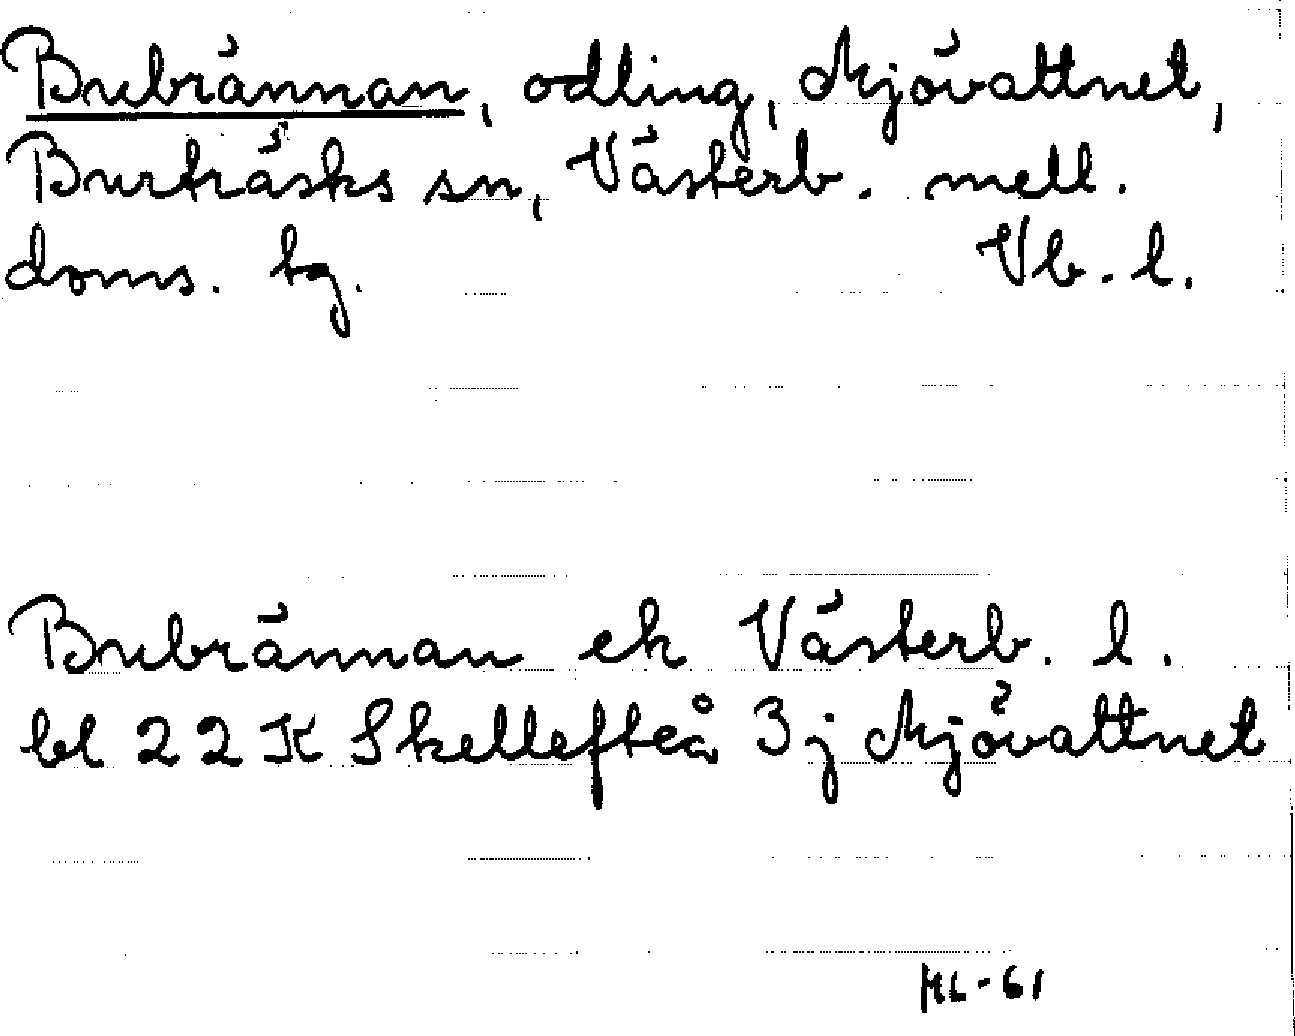 Bubrännan, odling, Mjövattnet,
Burträsks sn, Västerb. mell.
doms. tg. Vb. l.
Bubrännan ek Västerb. l.
bl 22 K Skellefteå 3 j Mjövattnet
ML-61